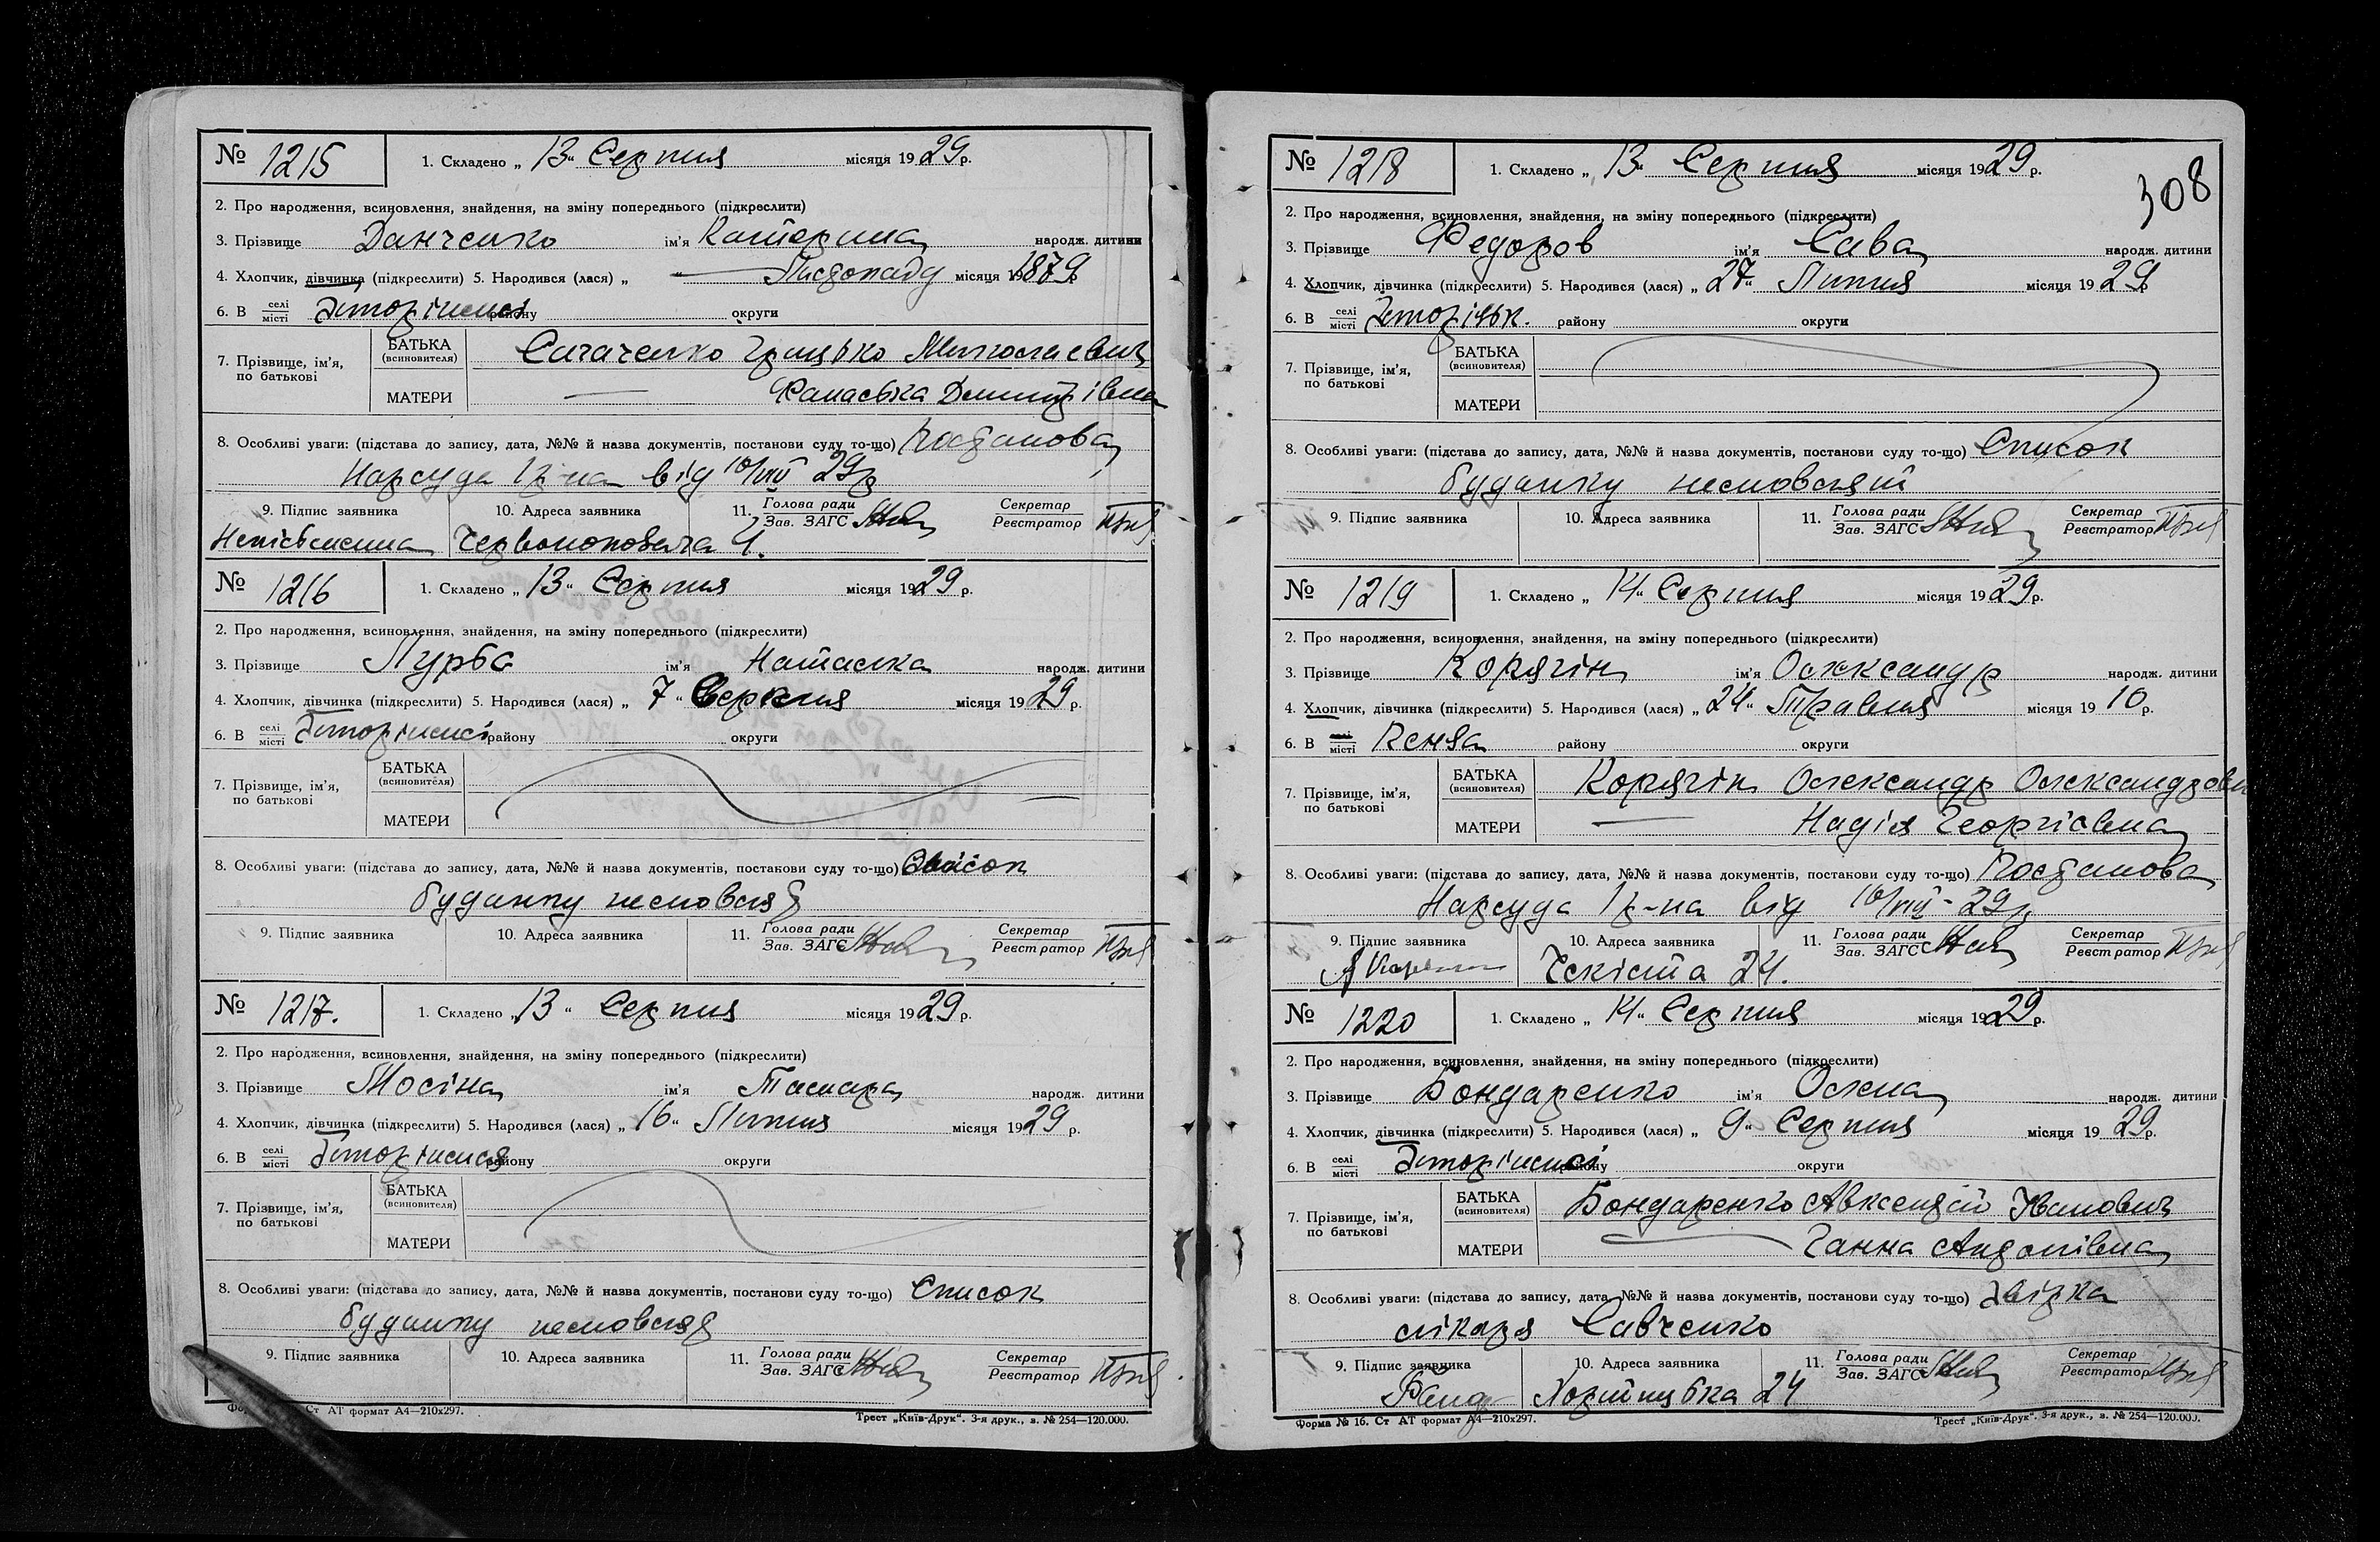 № 1215 1. Складено „ 13 “ Серпня місяця 1929 р.
2. Про народження, всиновлення, знайдення, на зміну попереднього (підкреслити)
3. Прізвище Данченко ім'я Катерина народж. дитини
4. Хлопчик, дівчинка (підкреслити) 5. Народився (лася) „ — Листопаду місяця 1879
6. В селі місті району округи
7. Прізвище, ім'я, по батькові БАТЬКА (всиновителя) Грицько Миколаєвич
МАТЕРИ — Дмитрівна
8. Особливі уваги: (підстава до запису, дата, №№ й назва документів, постанови суду то-що) Постанова
Нарсуда 1 р-на від 10/VIII 29р
9. Підпис заявника 10. Адреса заявника 11. Голова ради Зав. ЗАГС Секретар Реєстратор
Неписьменна 4.
№ 1216 1. Складено „ 13 “ Серпня місяця 1929 р.
2. Про народження, всиновлення, знайдення, на зміну попереднього (підкреслити)
3. Прізвище Лурба ім'я Наталка народж. дитини
4. Хлопчик, дівчинка (підкреслити) 5. Народився (лася) „ 7 “ Серпня місяця 1929 р.
6. В селі місті району округи
7. Прізвище, ім'я, по батькові БАТЬКА (всиновителя)
МАТЕРИ
8. Особливі уваги: (підстава до запису, дата, №№ й назва документів, постанови суду то-що) Список
будинку немовлят
9. Підпис заявника 10. Адреса заявника 11. Голова ради Зав. ЗАГС Секретар Реєстратор
№ 1217. 1. Складено „ 13 “ Серпня місяця 1929 р.
2. Про народження, всиновлення, знайдення, на зміну попереднього (підкреслити)
3. Прізвище Мосіна ім'я Тамара народж. дитини
4. Хлопчик, дівчинка (підкреслити) 5. Народився (лася) „ 16 “ Липня місяця 1929 р.
6. В селі місті району округи
7. Прізвище, ім'я, по батькові БАТЬКА (всиновителя)
МАТЕРИ
8. Особливі уваги: (підстава до запису, дата, №№ й назва документів, постанови суду то-що) Список
будинку немовлят
9. Підпис заявника 10. Адреса заявника 11. Голова ради Зав. ЗАГС Секретар Реєстратор
Ст АТ формат А4—210х297. Трест „Київ-Друк“. 3-я друк., з. № 254—120.000.
308
№ 1218 1. Складено „ 13 “ Серпня місяця 1929 р.
2. Про народження, всиновлення, знайдення, на зміну попереднього (підкреслити)
3. Прізвище Федоров ім'я Сава народж. дитини
4. Хлопчик, дівчинка (підкреслити) 5. Народився (лася) „ 27 “ Липня місяця 1929
6. В селі місті району округи
7. Прізвище, ім'я, по батькові БАТЬКА (всиновителя)
МАТЕРИ
8. Особливі уваги: (підстава до запису, дата, №№ й назва документів, постанови суду то-що) Список
будинку немовлят
9. Підпис заявника 10. Адреса заявника 11. Голова ради Зав. ЗАГС Секретар Реєстратор
№ 1219 1. Складено „ 14 “ Серпня місяця 1929 р.
2. Про народження, всиновлення, знайдення, на зміну попереднього (підкреслити)
3. Прізвище Корягін ім'я Олександр народж. дитини
4. Хлопчик, дівчинка (підкреслити) 5. Народився (лася) „ 24 “ Травня місяця 1910 р.
6. В селі місті Пенза району округи
7. Прізвище, ім'я, по батькові БАТЬКА (всиновителя) Корягін Олександр Олександрович
МАТЕРИ — Надія Георгієвна
8. Особливі уваги: (підстава до запису, дата, №№ й назва документів, постанови суду то-що) Постанова
Нарсуда 1 р-на від 10/VIII-29р
9. Підпис заявника 10. Адреса заявника 11. Голова ради Зав. ЗАГС Секретар Реєстратор
Чекіста 24.
№ 1220 1. Складено „ 14 “ Серпня місяця 1929 р.
2. Про народження, всиновлення, знайдення, на зміну попереднього (підкреслити)
3. Прізвище Бондаренко ім'я Олена народж. дитини
4. Хлопчик, дівчинка (підкреслити) 5. Народився (лася) „ 9 “ Серпня місяця 1929 р.
6. В селі місті району округи
7. Прізвище, ім'я, по батькові БАТЬКА (всиновителя) Бондаренко Авксентій Іванович
МАТЕРИ — Ганна
8. Особливі уваги: (підстава до запису, дата, №№ й назва документів, постанови суду то-що) Звірка
лікаря Савченко
9. Підпис заявника 10. Адреса заявника 11. Голова ради Зав. ЗАГС Секретар Реєстратор
24
Форма № 16. Ст АТ формат А4—210х297. Трест „Київ-Друк“. 3-я друк., з. № 254—120.000.